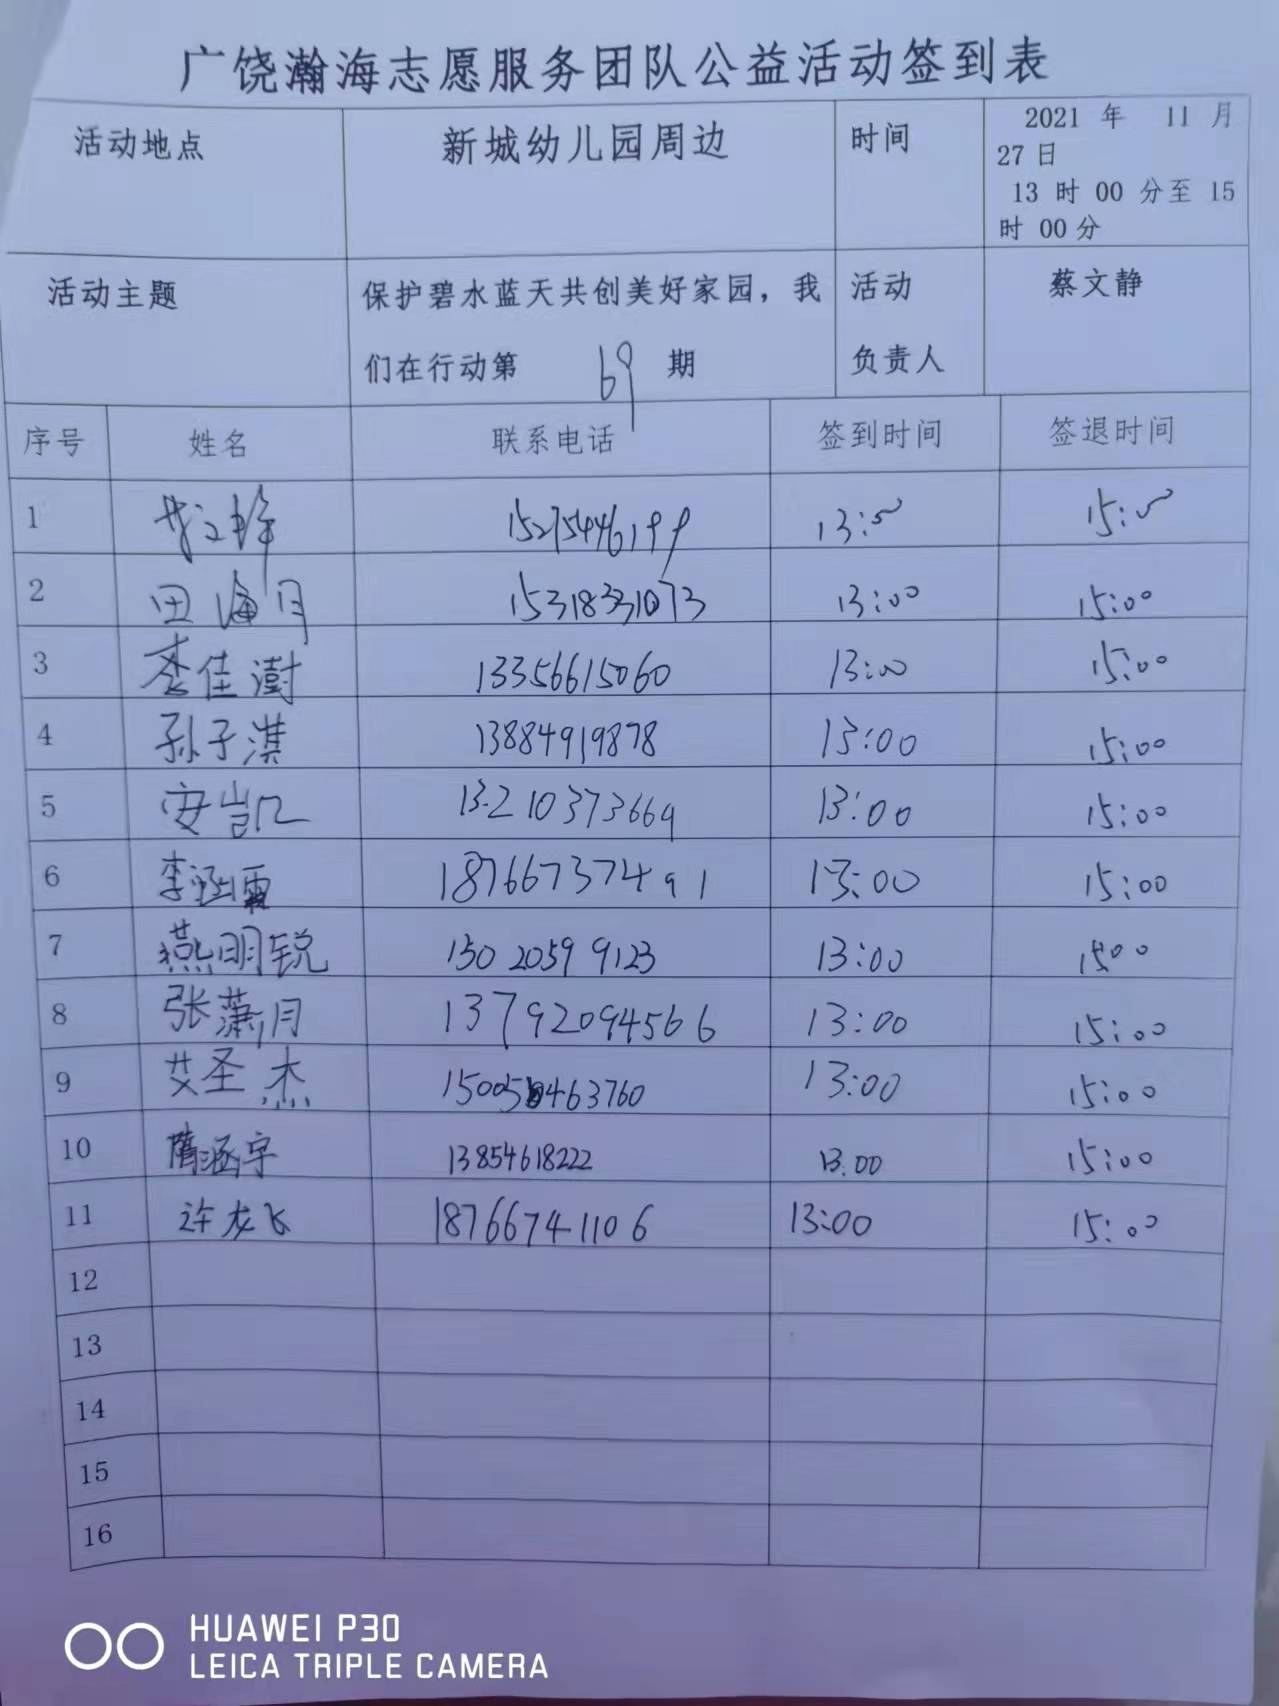 广饶瀚海志愿服务团队公益活动签到表
活动地点 新城幼儿园周边 时间 2021 年 11 月
27日
13 时 00 分至 15
时 00分
活动主题 保护碧水蓝天共创美好家园，我 活动 蔡文静
们在行动第 69 期 负责人
序号 姓名 联系电话 签到时间 签退时间
1 15275446199 13:00 15:00
2 田海月 15318331073 13:00 15:00
3 李佳澍 13356615060 13:00 15:00
4 孙子淇 13884919878 13:00 15:00
5 安凯 13210373669 13:00 15:00
6 李涵 18766737491 13:00 15:00
7 燕明锐 15020599123 13:00 1500
8 张潇月 13792094566 13:00 15:00
9 艾圣杰 13:00 15:00
10 隋涵宇 13854618222 13.00 15:00
11 许龙飞 18766741106 13:00 15:00
12
13
14
15
16
HUAWEI P30
LEICA TRIPLE CAMERA